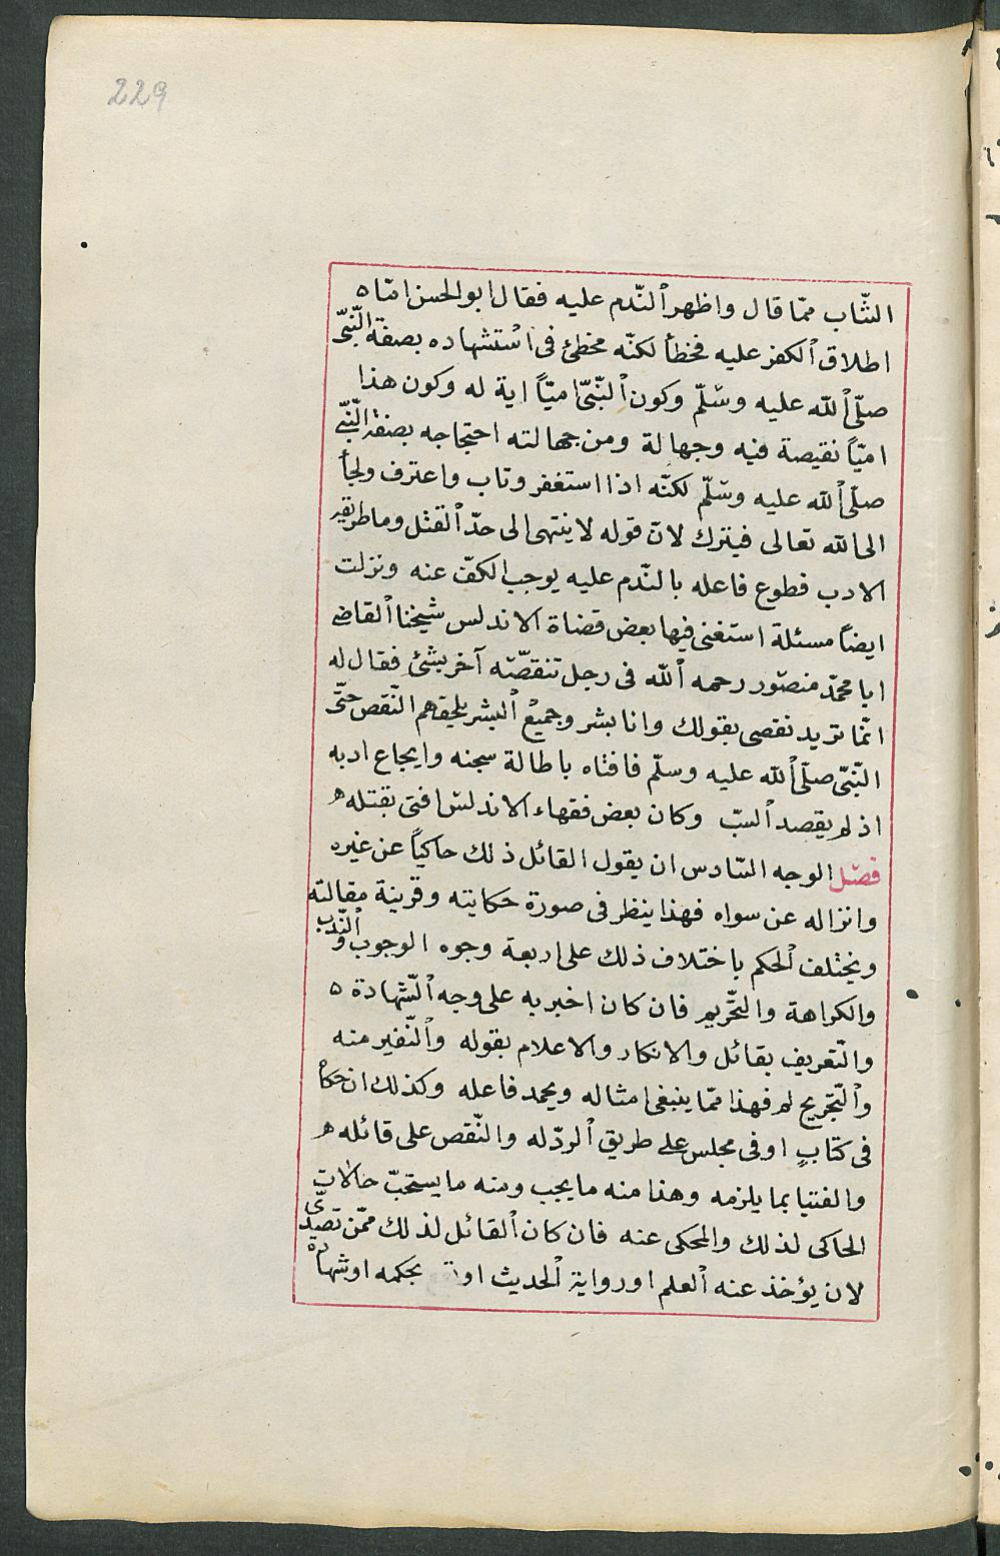 229
الشّاب ممّا قال واظهر ٱلنّدم عليه فقال ابو الحسن امّا ٥
اطلاق ٱلكفر عليه فخطأ لكنّه مخطئ فى استشهاده بصفة النّبىّ
صلّى ٱلله عليه وسّلّم وكون ٱلنّبّىّ اميّاً اية له وكون هذا
اميّاً نقيصة فيه وجهالة ومن جهالته احتجاجه بصفة النّبّى
صلّى ٱلله عليه وسّلّم لكنّه اذا استغفر وتاب واعترف ولجأ
الى الله تعالى فيترك لانّ قوله لا ينتهى الى حدّ ٱلقتل وما طريقه
الادب فطوع فاعله بالنّدم عليه يوجب الكفّ عنه ونزلت
ايضاً مسئلة استغنى فيها بعض قضاة الاندلس شيخنا ٱلقاضى
ابا محمّد منصّور رحمه ٱلله فى رجل تنقصّه آخر بشئ فقال له
انّما تريد نقصى بقولك وانا بشر وجميع ٱلبشر يلحقهم النّقص حتّى
النّبّى صلّى ٱلله عليه وسلّم فافتاه باطالة سجنه وايجاع ادبه
اذ لم يقصد ٱلسّبّ وكان بعض فقهاء الاندلس افتى بقتله ه
فصّل الوجه السّادس ان يقول القائل ذلك حاكياً عن غيره
وانزاله عن سواه فهذا ينظر فى صورة حكايته وقرينة مقالته
ويختلف ٱلحكم باختلاف ذلك على اربعة وجوه الوجوب و ٱلنّدب
والكراهة والتّحريم فان كان اخبر به على وجه ٱلشّهادة ٥
والتّعريف بقائل والانكار والاعلام بقوله وٱلنّفير منه
وٱلتّجريح له فهذا ممّا ينبغى امثاله ويحمد فاعله وكذلك ان حكاْ
فى كتابٍ او فى مجلس على طريق ٱلردّ له والنّقص على قائله ه
والفتيا بما يلزمه وهذا منه ما يجب ومنه ما يستحبّ حالات
الحاكى لذلك والمحكى عنه فان كان ٱلقائل لذلك ممّن تصّدّى
لان يؤخذ عنه ٱلعلم او رواية ٱلحديث او بحكمه او شهادة